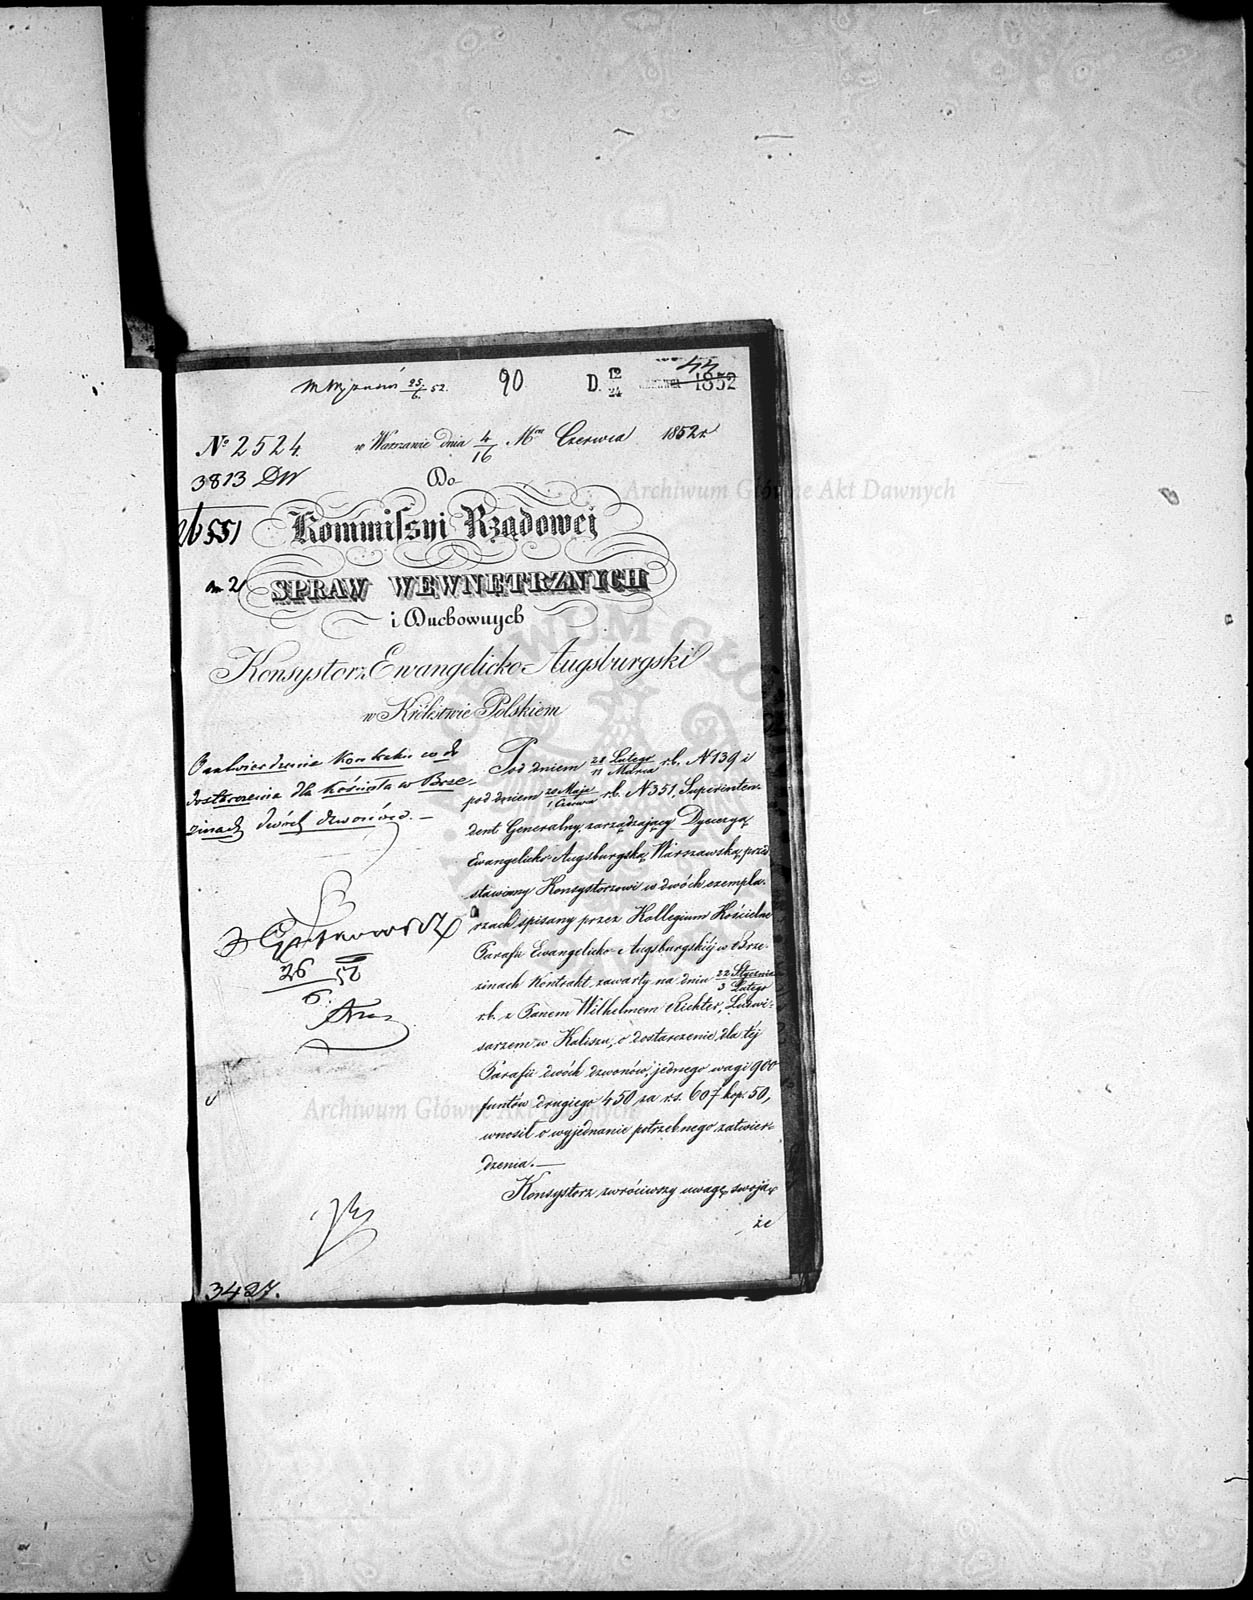 44
90
D. 12/24 1852
25/6 52.
№ 2524.
w Warszawie dnia 4/16 Mca Czerwca 1852 r.
3813 DW
Do
Kommissyi Rządowej
SPRAW WEWNĘTRZNYCH
i Duchownych
Konsystorz Ewangelicko-Augsburgski
w Królestwie Polskiem
O zatwierdzenie Kontraktu co do
dostarczenia dla Kościoła w Brze-
zinach dwóch dzwonów. —
26/6 52
3427.
Pod dniem 28 Lutego/11 Marca r.b. N 139 i
pod dniem 20 Maja/1 Czerwca r.b. N 351, Superinten-
dent Generalny, zarządzający Dyecezyą
Ewangelicko-Augsburgską Warszawską, przed
stawiwszy Konsystorzowi w dwóch exempla-
rzach spisany przez Kollegium Kościelne
Parafii Ewangelicko-Augsburgskiéj w Brze-
zinach Kontrakt, zawarty na dniu 22 Stycznia/3 Lutego
r.b. z Panem Wilhelmem Richter, Ludwi-
sarzem w Kaliszu, o dostarczenie dla téj
Parafii dwóch dzwonów, jednego wagi 900
funtów drugiego 450 za r.s. 607 kop. 50,
wnosił o wyjednanie potrzebnego zatwier-
dzenia. —
Konsystorz zwróciwszy uwagę swoją,
że
Archiwum Główne Akt Dawnych
Archiwum Główne Akt Dawnych